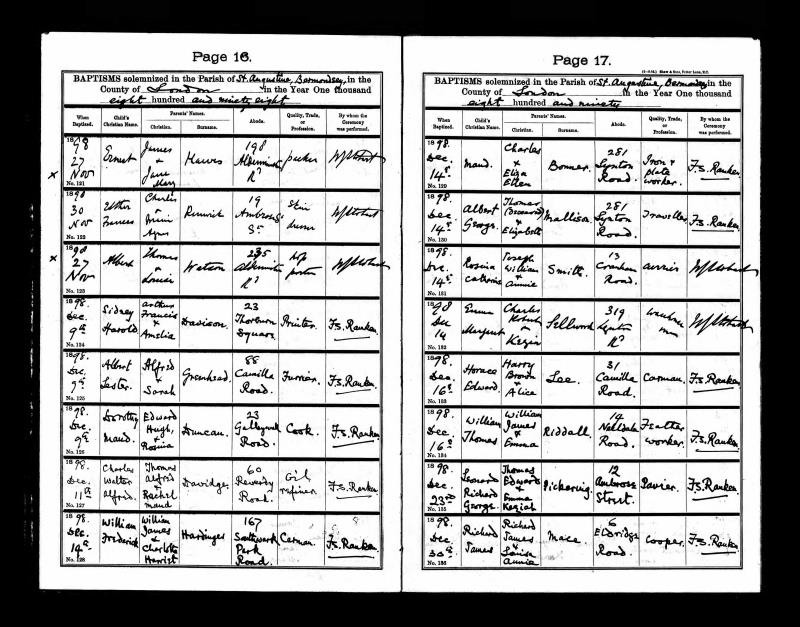 Page 16.
BAPTISMS solemnized in the Parish of St. Augustine, Bermondsey, in the
County of London in the Year One thousand
eight hundred and ninety eight
When Baptized.
Child's Christian Name.
Parents' Names.
Christian.
Surname.
Abode.
Quality, Trade, or Profession.
By whom the Ceremony was performed.
1898
27
Nov
No. 121
Ernest
James
+
Jane
Mary
Hawes
198
Rd
1898
30
Nov
No. 122
Esther
Frances
Charles
+
Agnes
19
Ambrose
St
1898
27
Nov
No. 123
Albert
Thomas
+
Louisa
Watson
235
Rd
porter
1898.
Dec.
9th
No. 124
Sidney
Harold
Arthur
Francis
+
Amelia
Davison.
23
Thorburn
Square.
Printer.
F.S. Ranken
1898.
Dec.
9th
No. 125
Albert
Lester.
Alfred
+
Sarah
Greenhead.
88
Camilla
Road.
Furrier.
F.S. Ranken
1898.
Dec.
9th
No. 126
Dorothy
Maud.
Edward
Hugh,
+
Rosina
Duncan.
23
Road.
Cook.
F.S. Ranken
1898.
Dec.
11th
No. 127
Charles
Walter
Alfred.
Thomas
Alfred
+
Rachel
Maud
Davidge.
60
Reverdy
Road.
Oil
refiner.
F.S. Ranken
1898.
Dec.
14th
No. 128
William
Frederick
William
James
+
Charlotte
Harriet
Hardinges
167
Southwark
Park
Road.
Carman.
F.S. Ranken
Page 17.
BAPTISMS solemnized in the Parish of St. Augustine, Bermondsey in the
County of London in the Year One thousand
eight hundred and ninety
When Baptized.
Child's Christian Name.
Parents' Names.
Christian.
Surname.
Abode.
Quality, Trade, or Profession.
By whom the Ceremony was performed.
1898.
Dec.
14th
No. 129
Maud.
Charles
+
Eliza
Ellen
Bonner.
281
Lynton
Road.
Iron +
plate
worker.
F.S. Ranken
1898.
Dec.
14th
No. 130
Albert
George.
Thomas
(Deceased)
+
Elizabeth
Mallison.
281
Lynton
Road.
Traveller.
F.S. Ranken
1898.
Dec.
14th
No. 131
Rosina
Catherine
Joseph
William
+
Annie
Smith.
13
Road.
Currier
1898
Dec
14
No. 132
Emma
Margaret
Charles
Robert
+
Kezia
Sellwood
319
Lynton
Rd
1898.
Dec.
16th
No. 133
Horace
Edward.
Harry
Brown
+
Alice
Lee.
31
Camilla
Road.
Carman.
F.S. Ranken
1898.
Dec.
16th
No. 134
William
Thomas.
William
James
+
Emma
Riddall.
14
Nelldale
Road.
Leather
worker.
F.S. Ranken
1898.
Dec.
23rd
No. 135
Leonard
Richard
George.
Thomas
Edward
+
Emma
Keziah
Pickering.
12
Ambrose
Street.
Pavier.
F.S. Ranken
1898.
Dec.
30th
No. 136
Richard
James
Richard
James
+
Louisa
Annie
Mace.
6
Eldridge
Road.
Cooper.
F.S. Ranken